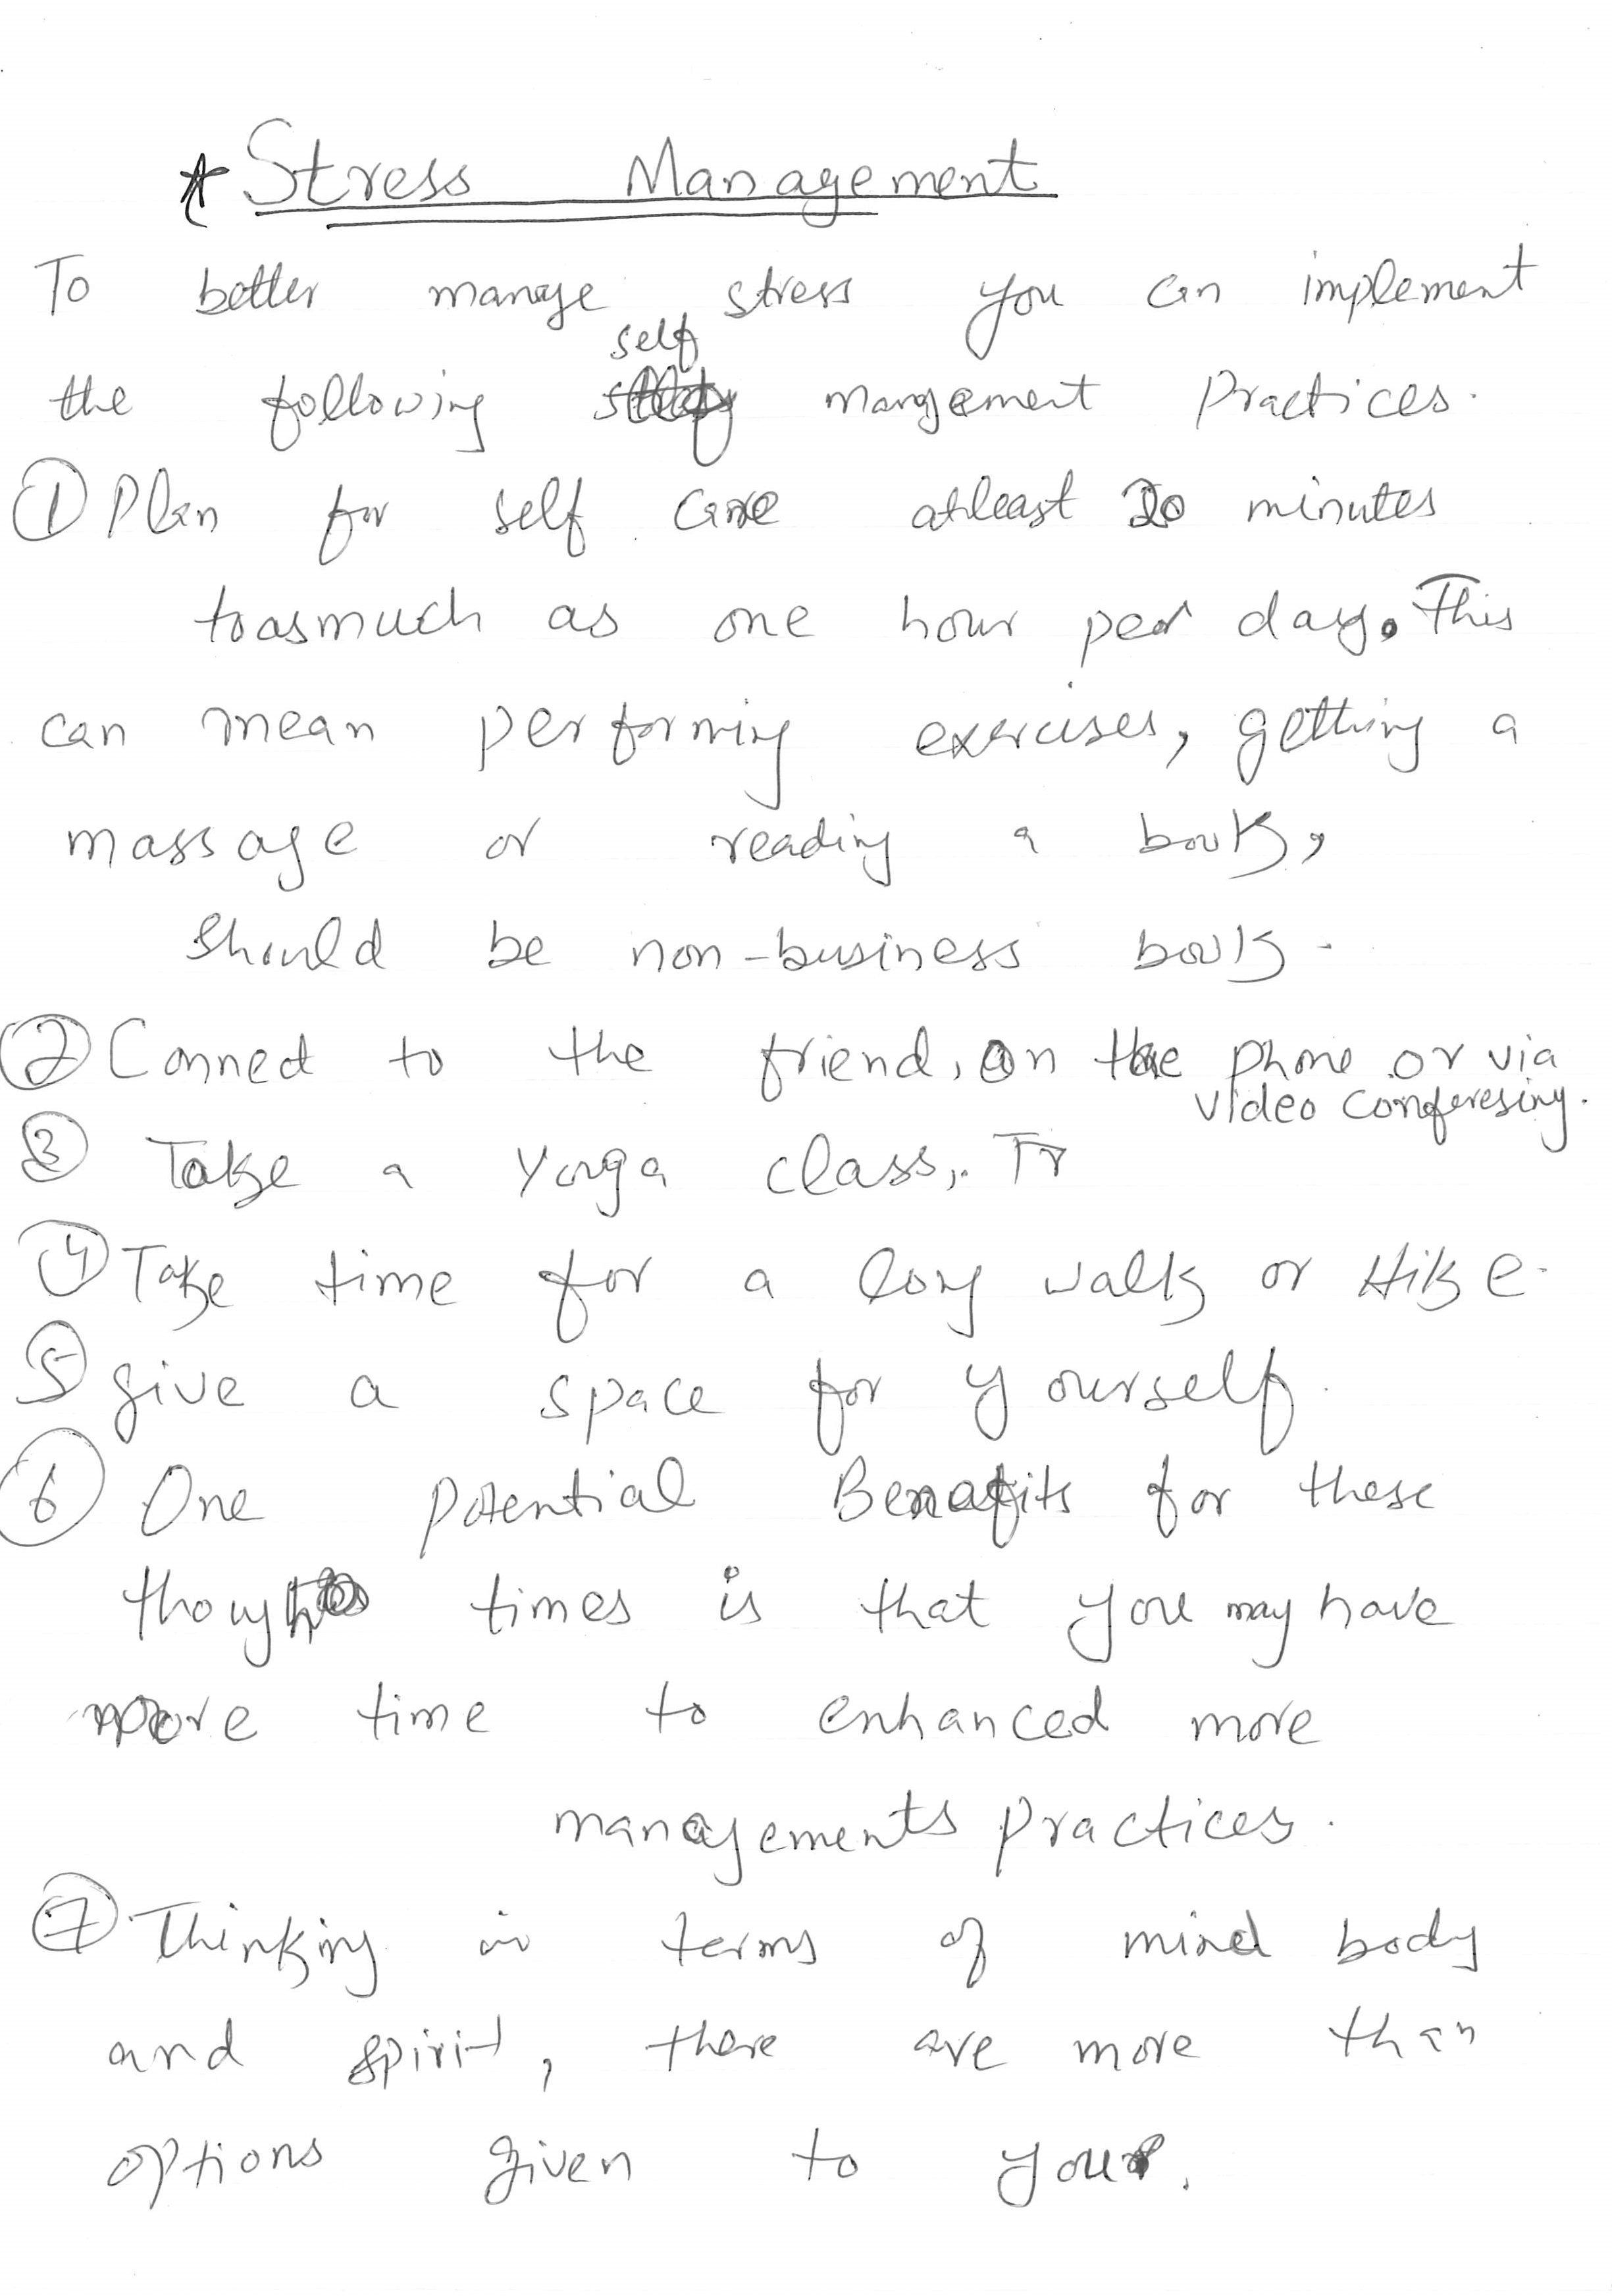 * Stress Management
To better manage stress you can implement
the following self management Practices.
① Plan for self care atleast 20 minutes
toasmuch as one hour per day. This
can mean performing exercises, getting a
massage or reading a book,
Should be non-business book.
② Connect to the friend, on the phone or via
video conferesing.
③ Take a Youga class, Tr
④ Take time for a long walk or Hike.
⑤ give a space for yourself.
⑥ One potential Benafits for these
though times is that you may have
more time to enhanced more
managements practices.
⑦ Thinking in terms of mind body
and spirit, there are more than
options given to you.